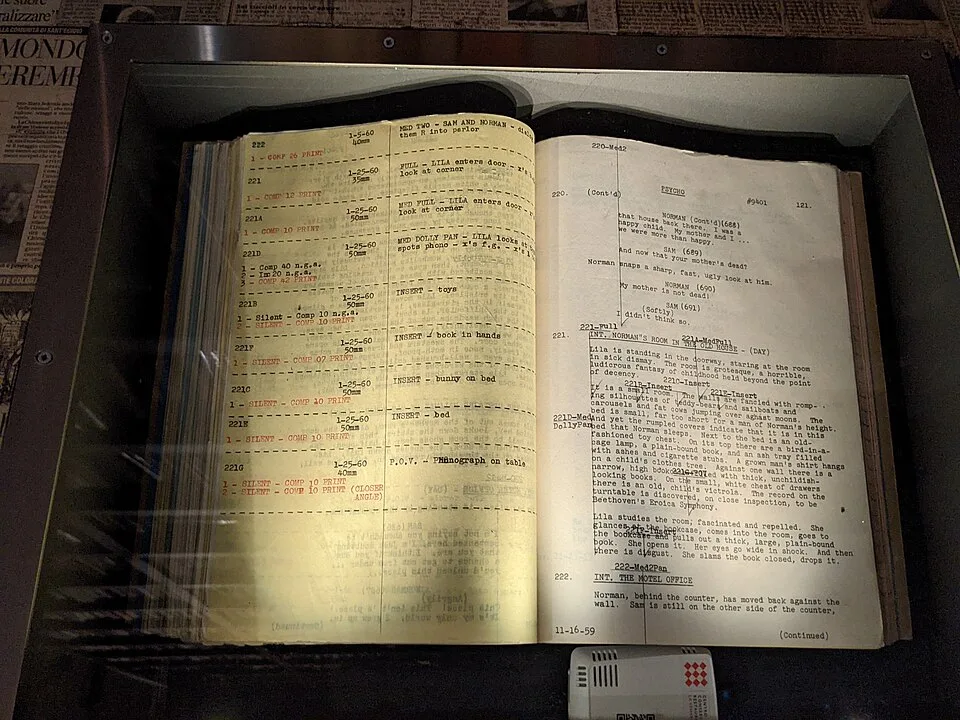 MONDO
222
1-5-60
40mm
MED TWO - SAM AND NORMAN -
them R into parlor
1 - COMP 26 PRINT
221
1-25-60
35mm
FULL - LILA enters door - x's
look at corner
1 - COMP 12 PRINT
221A
1-25-60
50mm
MED FULL - LILA enters door -
look at corner
1 - COMP 10 PRINT
221D
1-25-60
50mm
MED DOLLY PAN - LILA looks at
spots phono - x's f.g.
1 - Comp 40 n.g.a.
2 - Inc20 n.g.a.
3 - COMP 42 PRINT
221B
1-25-60
50mm
INSERT - toys
1 - Silent - Comp 10 n.g.a.
2 - SILENT - COMP 10 PRINT
221F
1-25-60
50mm
INSERT - book in hands
1 - SILENT - COMP 07 PRINT
221C
1-25-60
50mm
INSERT - bunny on bed
1 - SILENT - COMP 10 PRINT
221E
1-25-60
50mm
INSERT - bed
1 - SILENT - COMP 10 PRINT
221G
1-25-60
40mm
P.O.V. - Phonograph on table
1 - SILENT - COMP 10 PRINT
2 - SILENT - COMP 10 PRINT (CLOSER
ANGLE)
220-Med2
PSYCHO
#9401 121.
220. (Cont'd)
NORMAN (Cont'd)(688)
that house back there. I was a
happy child. My mother and I ...
we were more than happy.
SAM (689)
And now that your mother's dead?
Norman snaps a sharp, fast, ugly look at him.
NORMAN (690)
My mother is not dead!
SAM (691)
(Softly)
I didn't think so.
221-Full
221A-MedFull
221. INT. NORMAN'S ROOM IN THE OLD HOUSE - (DAY)
Lila is standing in the doorway, staring at the room
in sick dismay. The room is grotesque, a horrible,
ludicrous fantasy of childhood held beyond the point
of decency.
221B-Insert 221C-Insert
221E-Insert
It is a small room. The walls are fancied with romp-
ing silhouettes of teddy-bears and sailboats and
carousels and fat cows jumping over aghast moons. The
bed is small, far too short for a man of Norman's height.
221D-Med
DollyPan
And yet the rumpled covers indicate that it is in this
bed that Norman sleeps. Next to the bed is an old-
fashioned toy chest. On its top there are a bird-in-a-
cage lamp, a plain-bound book, and an ash tray filled
with ashes and cigarette stubs. A grown man's shirt hangs
on a child's clothes tree. Against one wall there is a
narrow, high bookcase filled with thick, unchildish-
looking books. On the small, white chest of drawers
there is an old, child's victrola. The record on the
turntable is discovered, on close inspection, to be
Beethoven's Eroica Symphony.
Lila studies the room, fascinated and repelled. She
glances at the bookcase, comes into the room, goes to
221F-Insert
the bookcase and pulls out a thick, large, plain-bound
book. She opens it. Her eyes go wide in shock. And then
there is disgust. She slams the book closed, drops it.
222-Med2Pan
222. INT. THE MOTEL OFFICE
Norman, behind the counter, has moved back against the
wall. Sam is still on the other side of the counter,
11-16-59
(Continued)